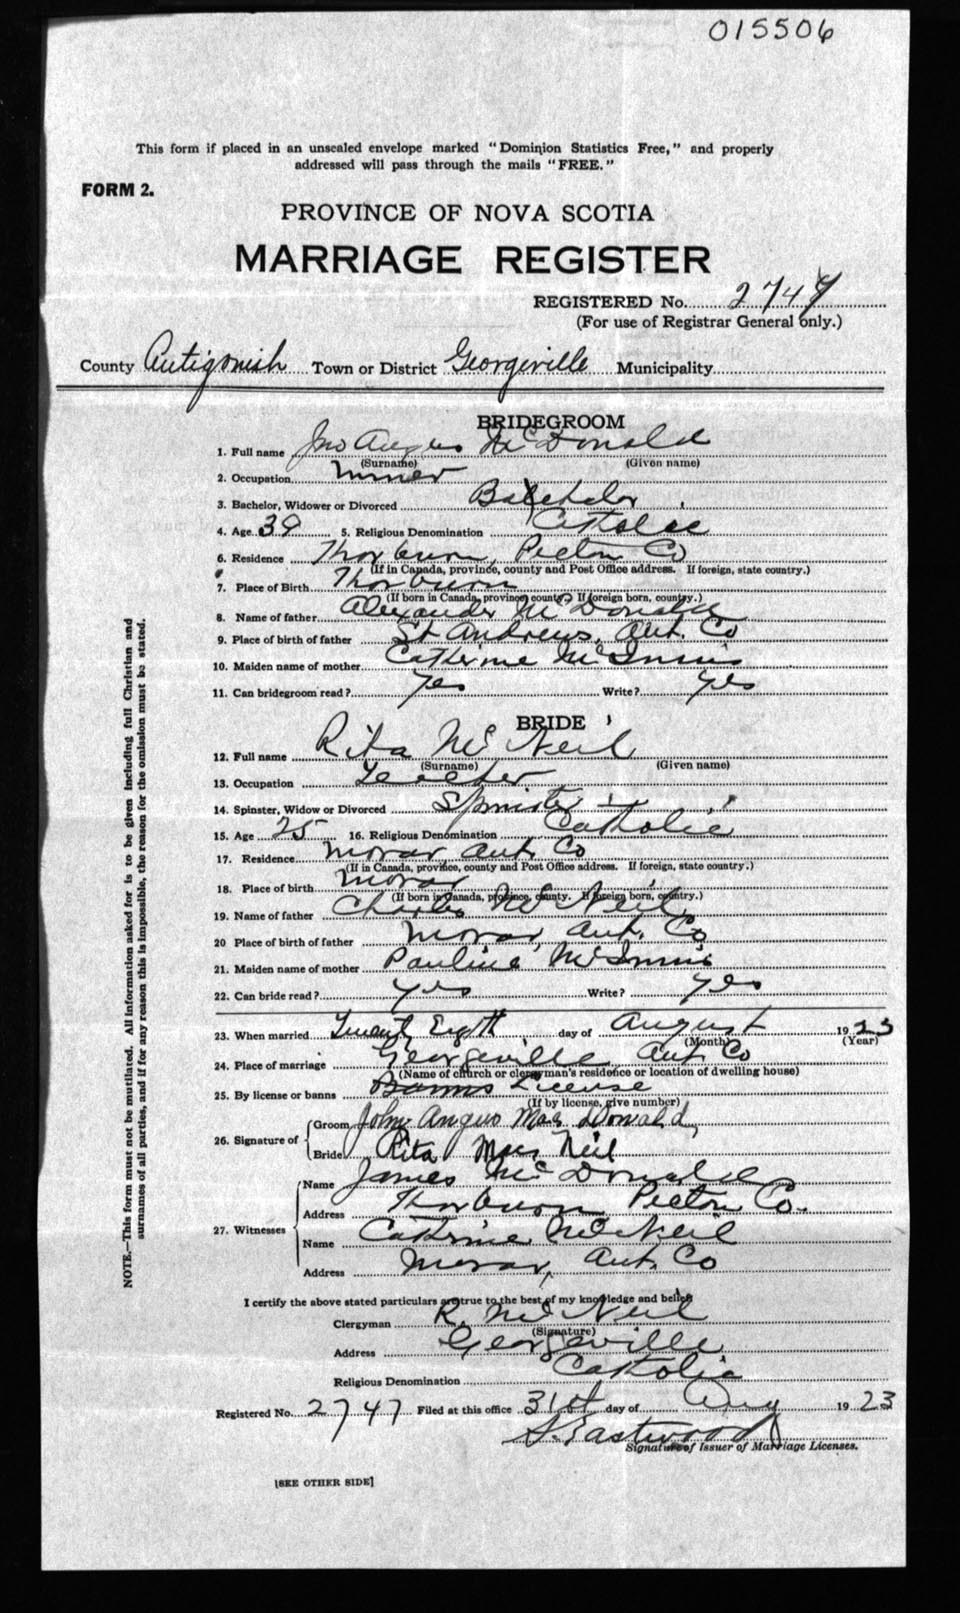 015506
This form if placed in an unsealed envelope marked "Dominion Statistics Free," and properly
addressed will pass through the mails "FREE."
FORM 2.
PROVINCE OF NOVA SCOTIA
MARRIAGE REGISTER
REGISTERED No. 2747
(For use of Registrar General only.)
County Antigonish Town or District Georgeville Municipality
BRIDEGROOM
1. Full name Jno Angus McDonald
(Surname) (Given name)
2. Occupation miner
3. Bachelor, Widower or Divorced Batchelor
4. Age 39 5. Religious Denomination Catholic
6. Residence Thorburn Pictou Co
(If in Canada, province, county and Post Office address. If foreign, state country.)
7. Place of Birth Thorburn
(If born in Canada, province, county. If foreign born, country.)
8. Name of father Alexander McDonald
9. Place of birth of father St Andrews, Ant. Co
10. Maiden name of mother Catherine McInnis
11. Can bridegroom read? yes Write? yes
BRIDE
12. Full name Rita McNeil
(Surname) (Given name)
13. Occupation Teacher
14. Spinster, Widow or Divorced Spinster
15. Age 25 16. Religious Denomination Catholic
17. Residence Morar Ant Co
(If in Canada, province, county and Post Office address. If foreign, state country.)
18. Place of birth Morar
(If born in Canada, province, county. If foreign born, country.)
19. Name of father Charles McNeil
20 Place of birth of father Morar, Ant. Co
21. Maiden name of mother Pauline McInnis
22. Can bride read? yes Write? yes
23. When married Twenty Eigth day of August 1923
(Month) (Year)
24. Place of marriage Georgeville Ant Co
(Name of church or clergyman's residence or location of dwelling house)
25. By license or banns Banns License
(If by license, give number)
26. Signature of Groom John Angus MacDonald,
Bride Rita MacNeil
27. Witnesses Name James McDonald
Address Thorburn Pictou Co.
Name Cathrine McNeil
Address Morar, Ant. Co
I certify the above stated particulars are true to the best of my knowledge and belief
Clergyman R. McNeil
(Signature)
Address Georgeville
Religious Denomination Catholic
Registered No. 2747 Filed at this office 31st day of Aug 1923
S. Eastwood
Signature of Issuer of Marriage Licenses.
[SEE OTHER SIDE]
NOTE.—This form must not be mutilated. All information asked for is to be given including full Christian and
surnames of all parties, and if for any reason this is impossible, the reason for the omission must be stated.